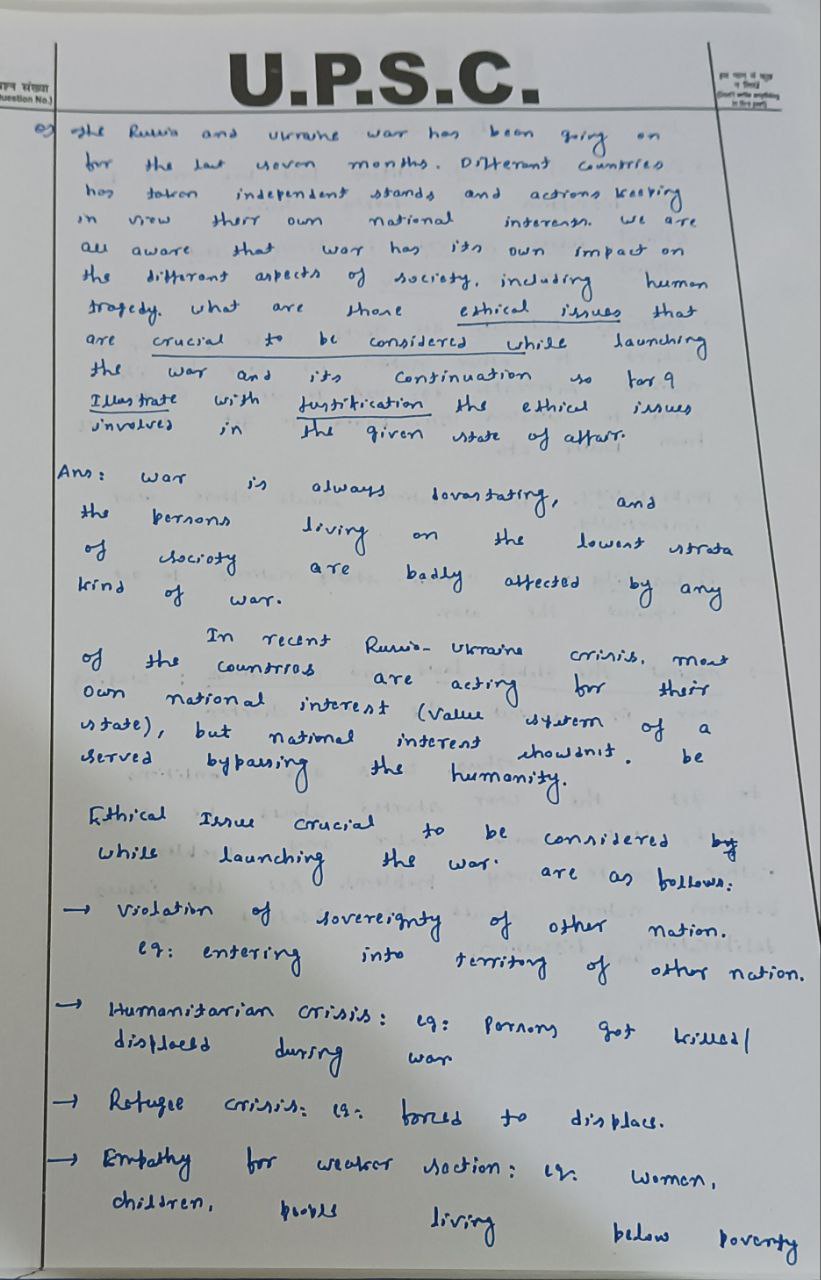 U.P.S.C.
प्रश्न संख्या
(Question No.)
Q) The Russia and Ukraine war has been going on
for the last seven months. Different countries
has taken independent stands and actions keeping
in view their own national interests. We are
all aware that war has its own impact on
the different aspects of society, including human
tragedy. What are those ethical issues that
are crucial to be considered while launching
the war and its continuation so far?
Illustrate with justification the ethical issues
involved in the given state of affair.
Ans: War is always devastating, and
the persons living on the lowest strata
of society are badly affected by any
kind of war.
In recent Russia-Ukraine crisis, most
of the countries are acting for their
own national interest (value system of a
state), but national interest shouldnit. be
served bypassing the humanity.
Ethical Issue crucial to be considered
while launching the war. are as follows:
→ Violation of sovereignty of other nation.
eg: entering into territory of other nation.
→ Humanitarian crisis: eg: persons got killed/
displaced during war
→ Refugee crisis: eg: forced to displace.
→ Empathy for weaker section: eg: women,
children, people living below poverty